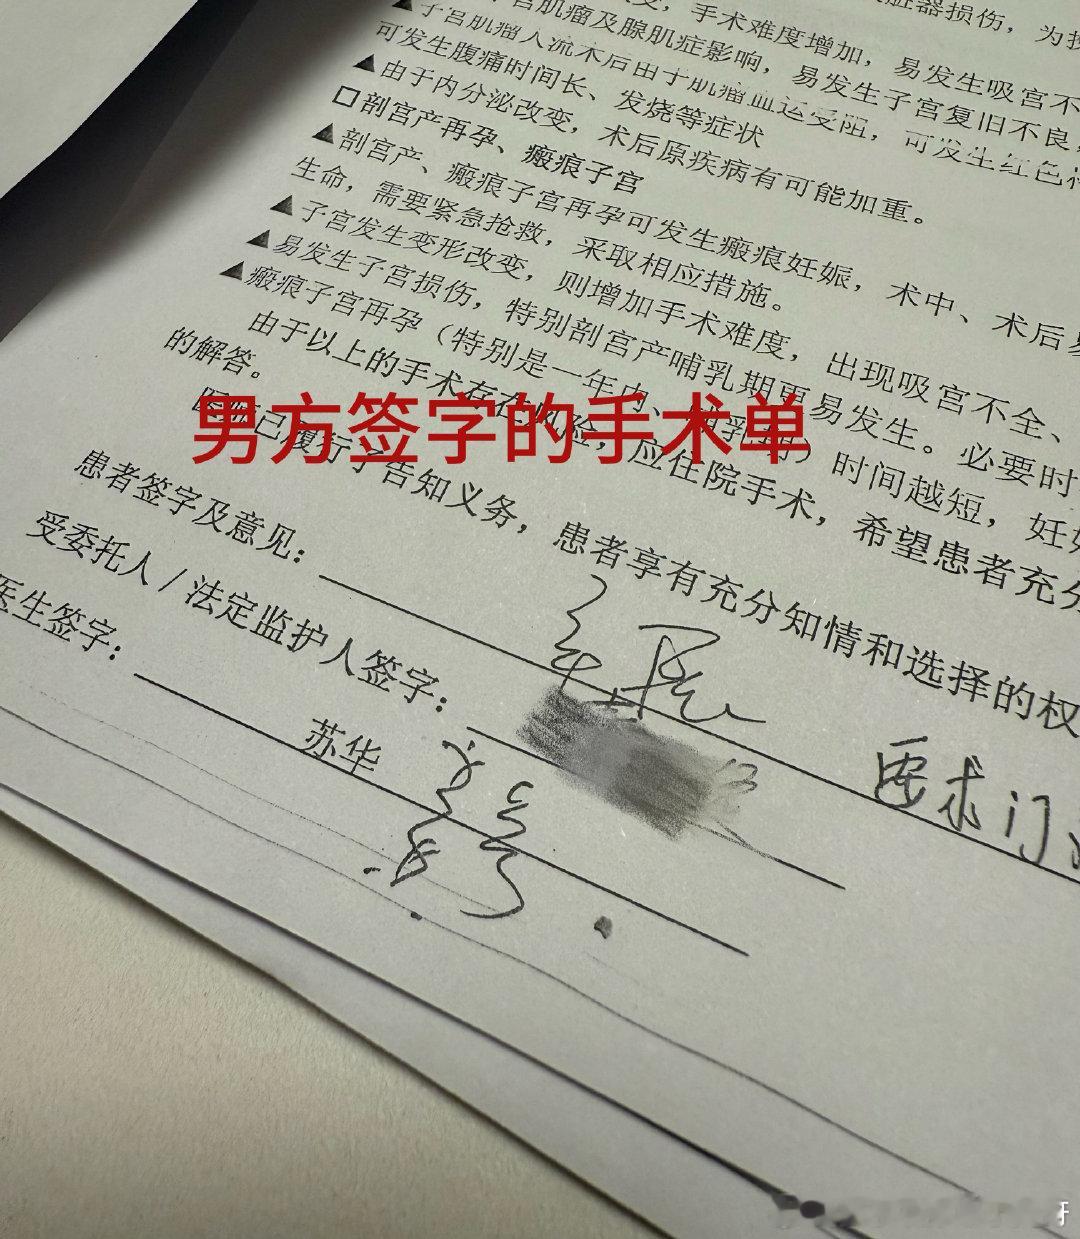 脏器损伤，为
变，手术难度增加，易发生吸宫不
宫肌瘤及腺肌症影响，易发生子宫复旧不良，
▲子宫肌瘤人流术后由于肌瘤血运受阻，可发生红色
可发生腹痛时间长、发烧等症状
▲由于内分泌改变，术后原疾病有可能加重。
□剖宫产再孕、瘢痕子宫
▲剖宫产、瘢痕子宫再孕可发生瘢痕妊娠，术中、术后易
生命，需要紧急抢救，采取相应措施。
▲子宫发生变形改变，则增加手术难度，出现吸宫不全、
▲易发生子宫损伤，特别剖宫产哺乳期更易发生。必要时
▲瘢痕子宫再孕（特别是一年内、哺乳期）时间越短，妊
由于以上的手术存在风险，应住院手术，希望患者充分
的解答。
医师已履行了告知义务，患者享有充分知情和选择的权
男方签字的手术单
患者签字及意见：
要求门
受委托人/法定监护人签字：
医生签字：
苏华